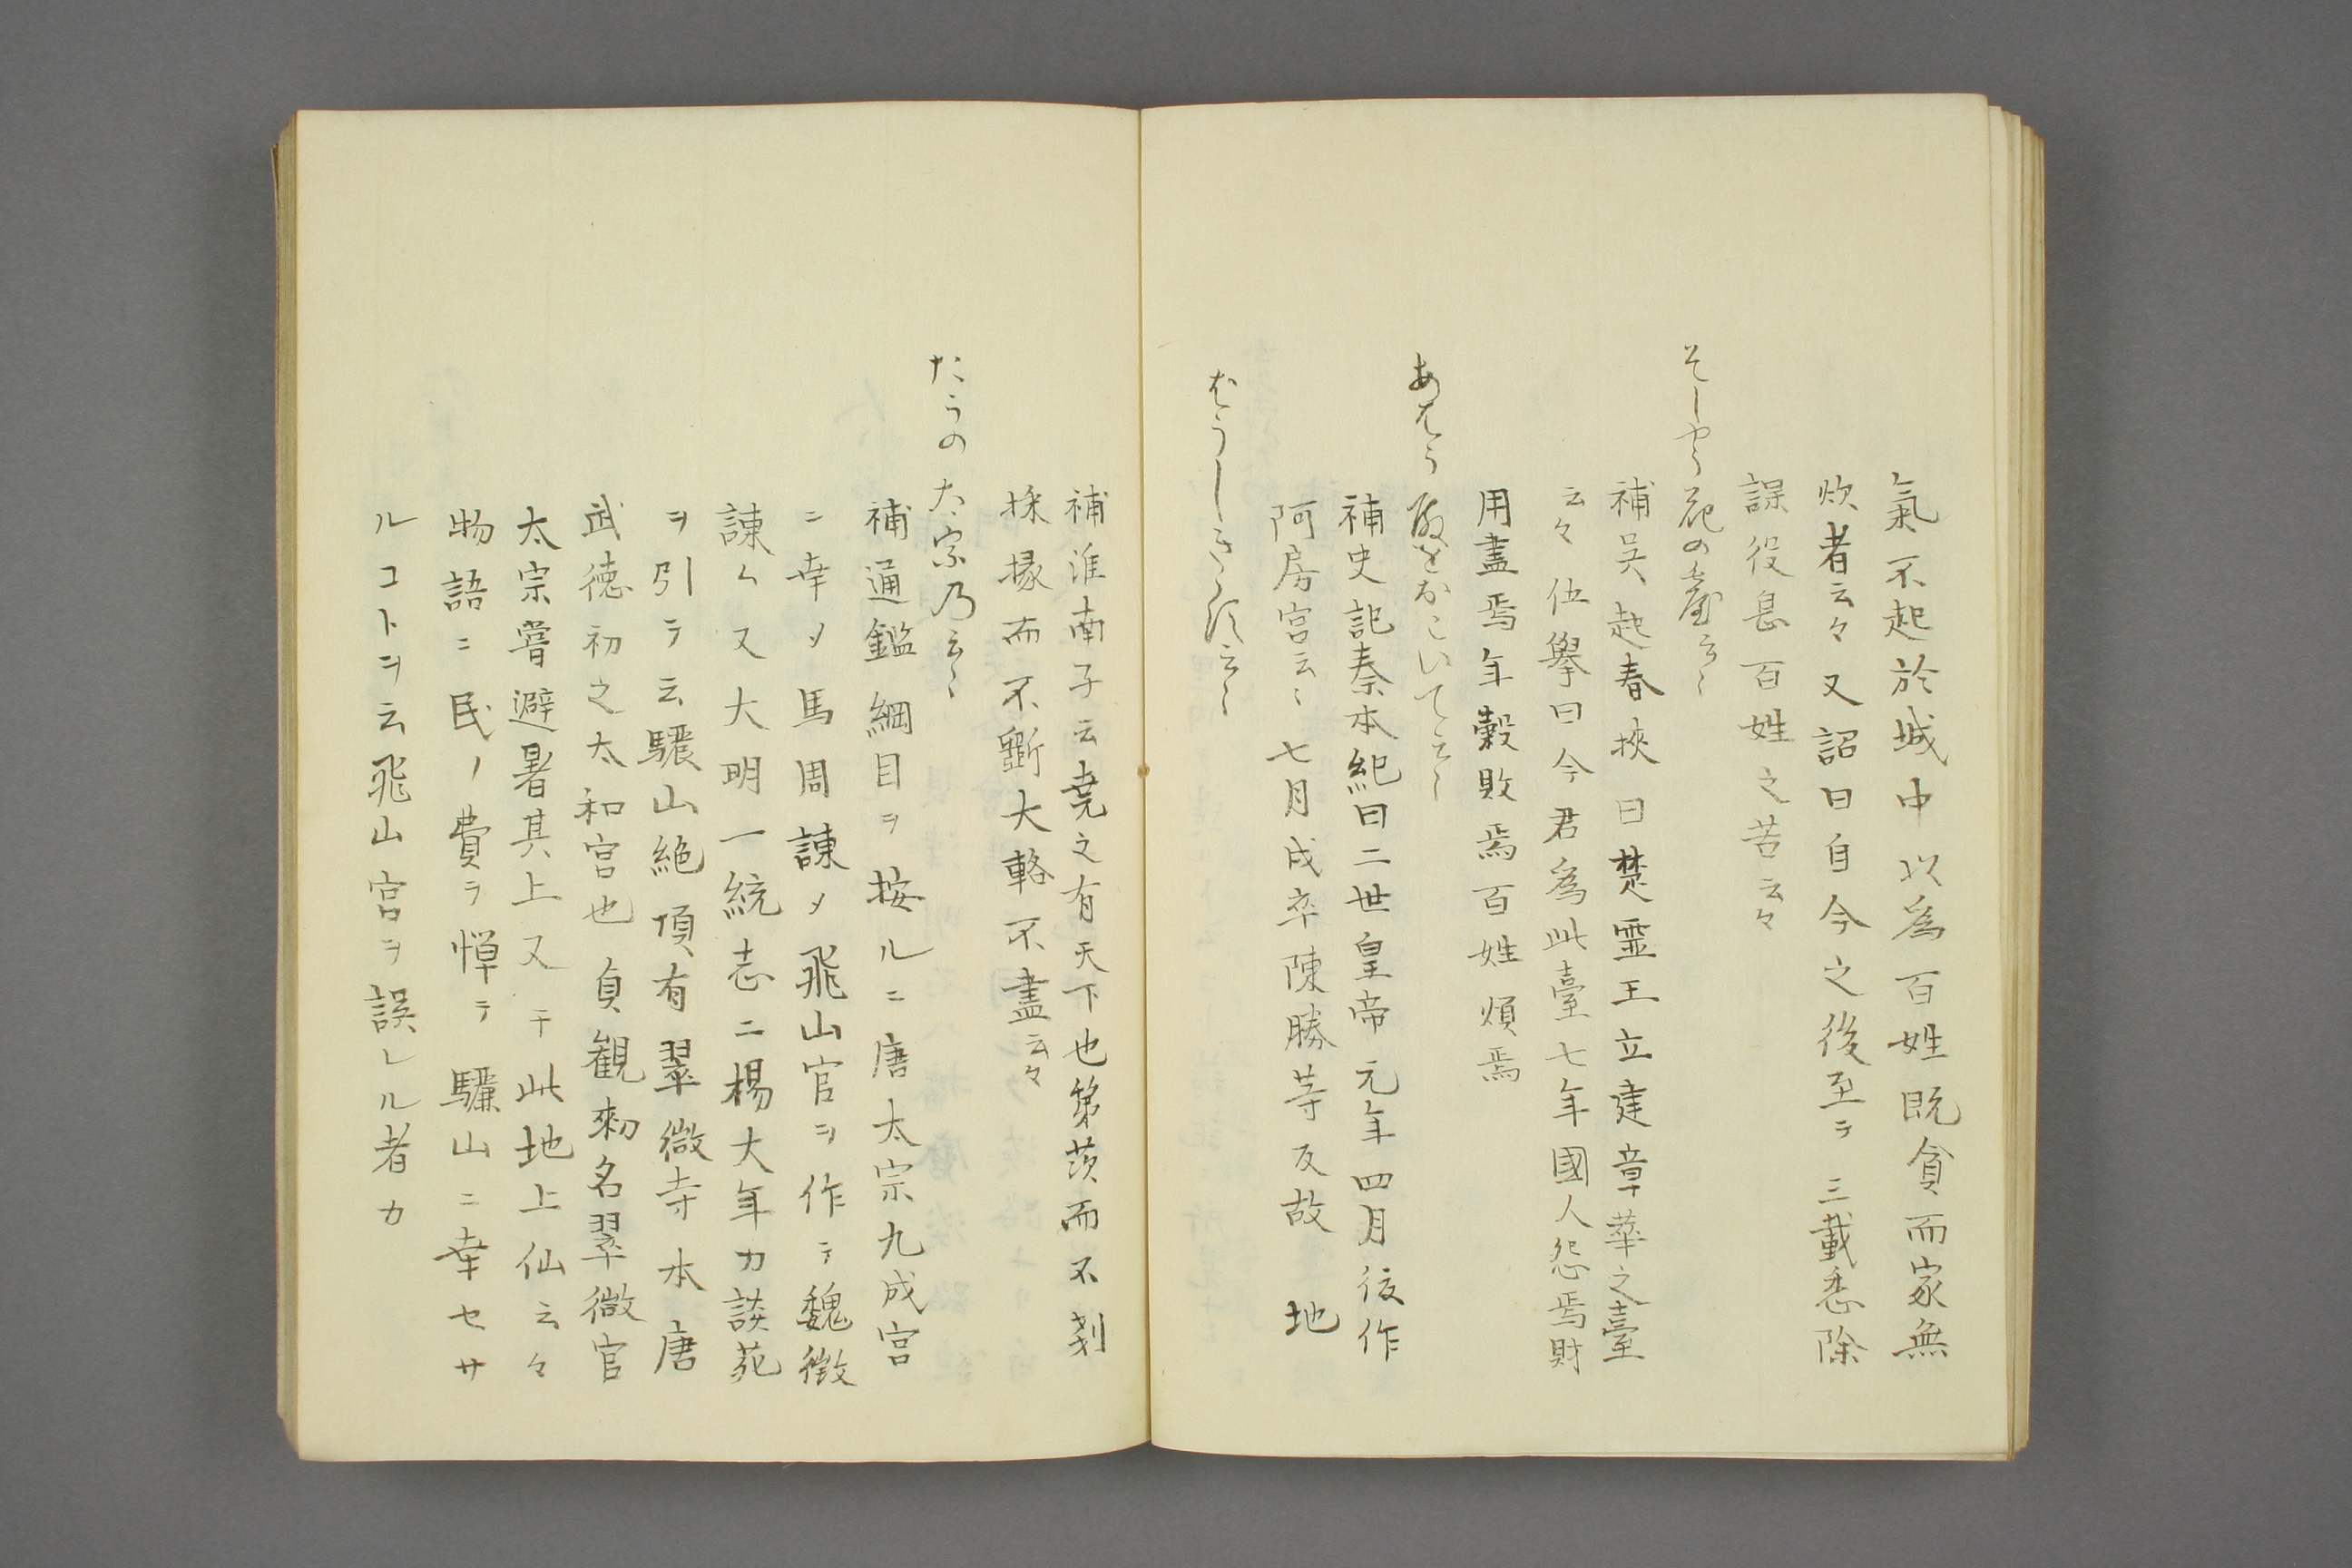 氣不起於城中以為百姓既貧而家無
炊者云々又詔曰自今之後至ラ三載悉除
誤役息百姓之苦云々
そしやう花の臺云〻
補吳起春挾曰楚霊王立建章華之臺
云々伍擧曰今君為此臺七年國人怨焉財
用盡焉年穀敗焉百姓煩焉
あはう殿をおこいて云〻
補史記秦本紀曰二世皇帝元年四月後作
阿房宮云〻七月戍卒陳勝等反故地
はうしきらす云〻
補淮南子云堯之有天下也第茨而不剗
採椽而不斷大輅不畫云々
たうの太宗乃云〻
補通鑑綱目ヲ按ルニ唐太宗九成宮
ニ幸〆馬周諫〆飛山官ヲ作テ魏徴
諫ム又大明一統志ニ楊大年カ談苑
ヲ引テ云驪山絶頂有翠微寺本唐
武徳初之太和宮也貞観勑名翠微官
太宗嘗避暑其上又于此地上仙云々
物語ニ民ノ費ラ憚テ驪山ニ幸セサ
ルコトヲ云飛山宮ヲ誤レル者カ